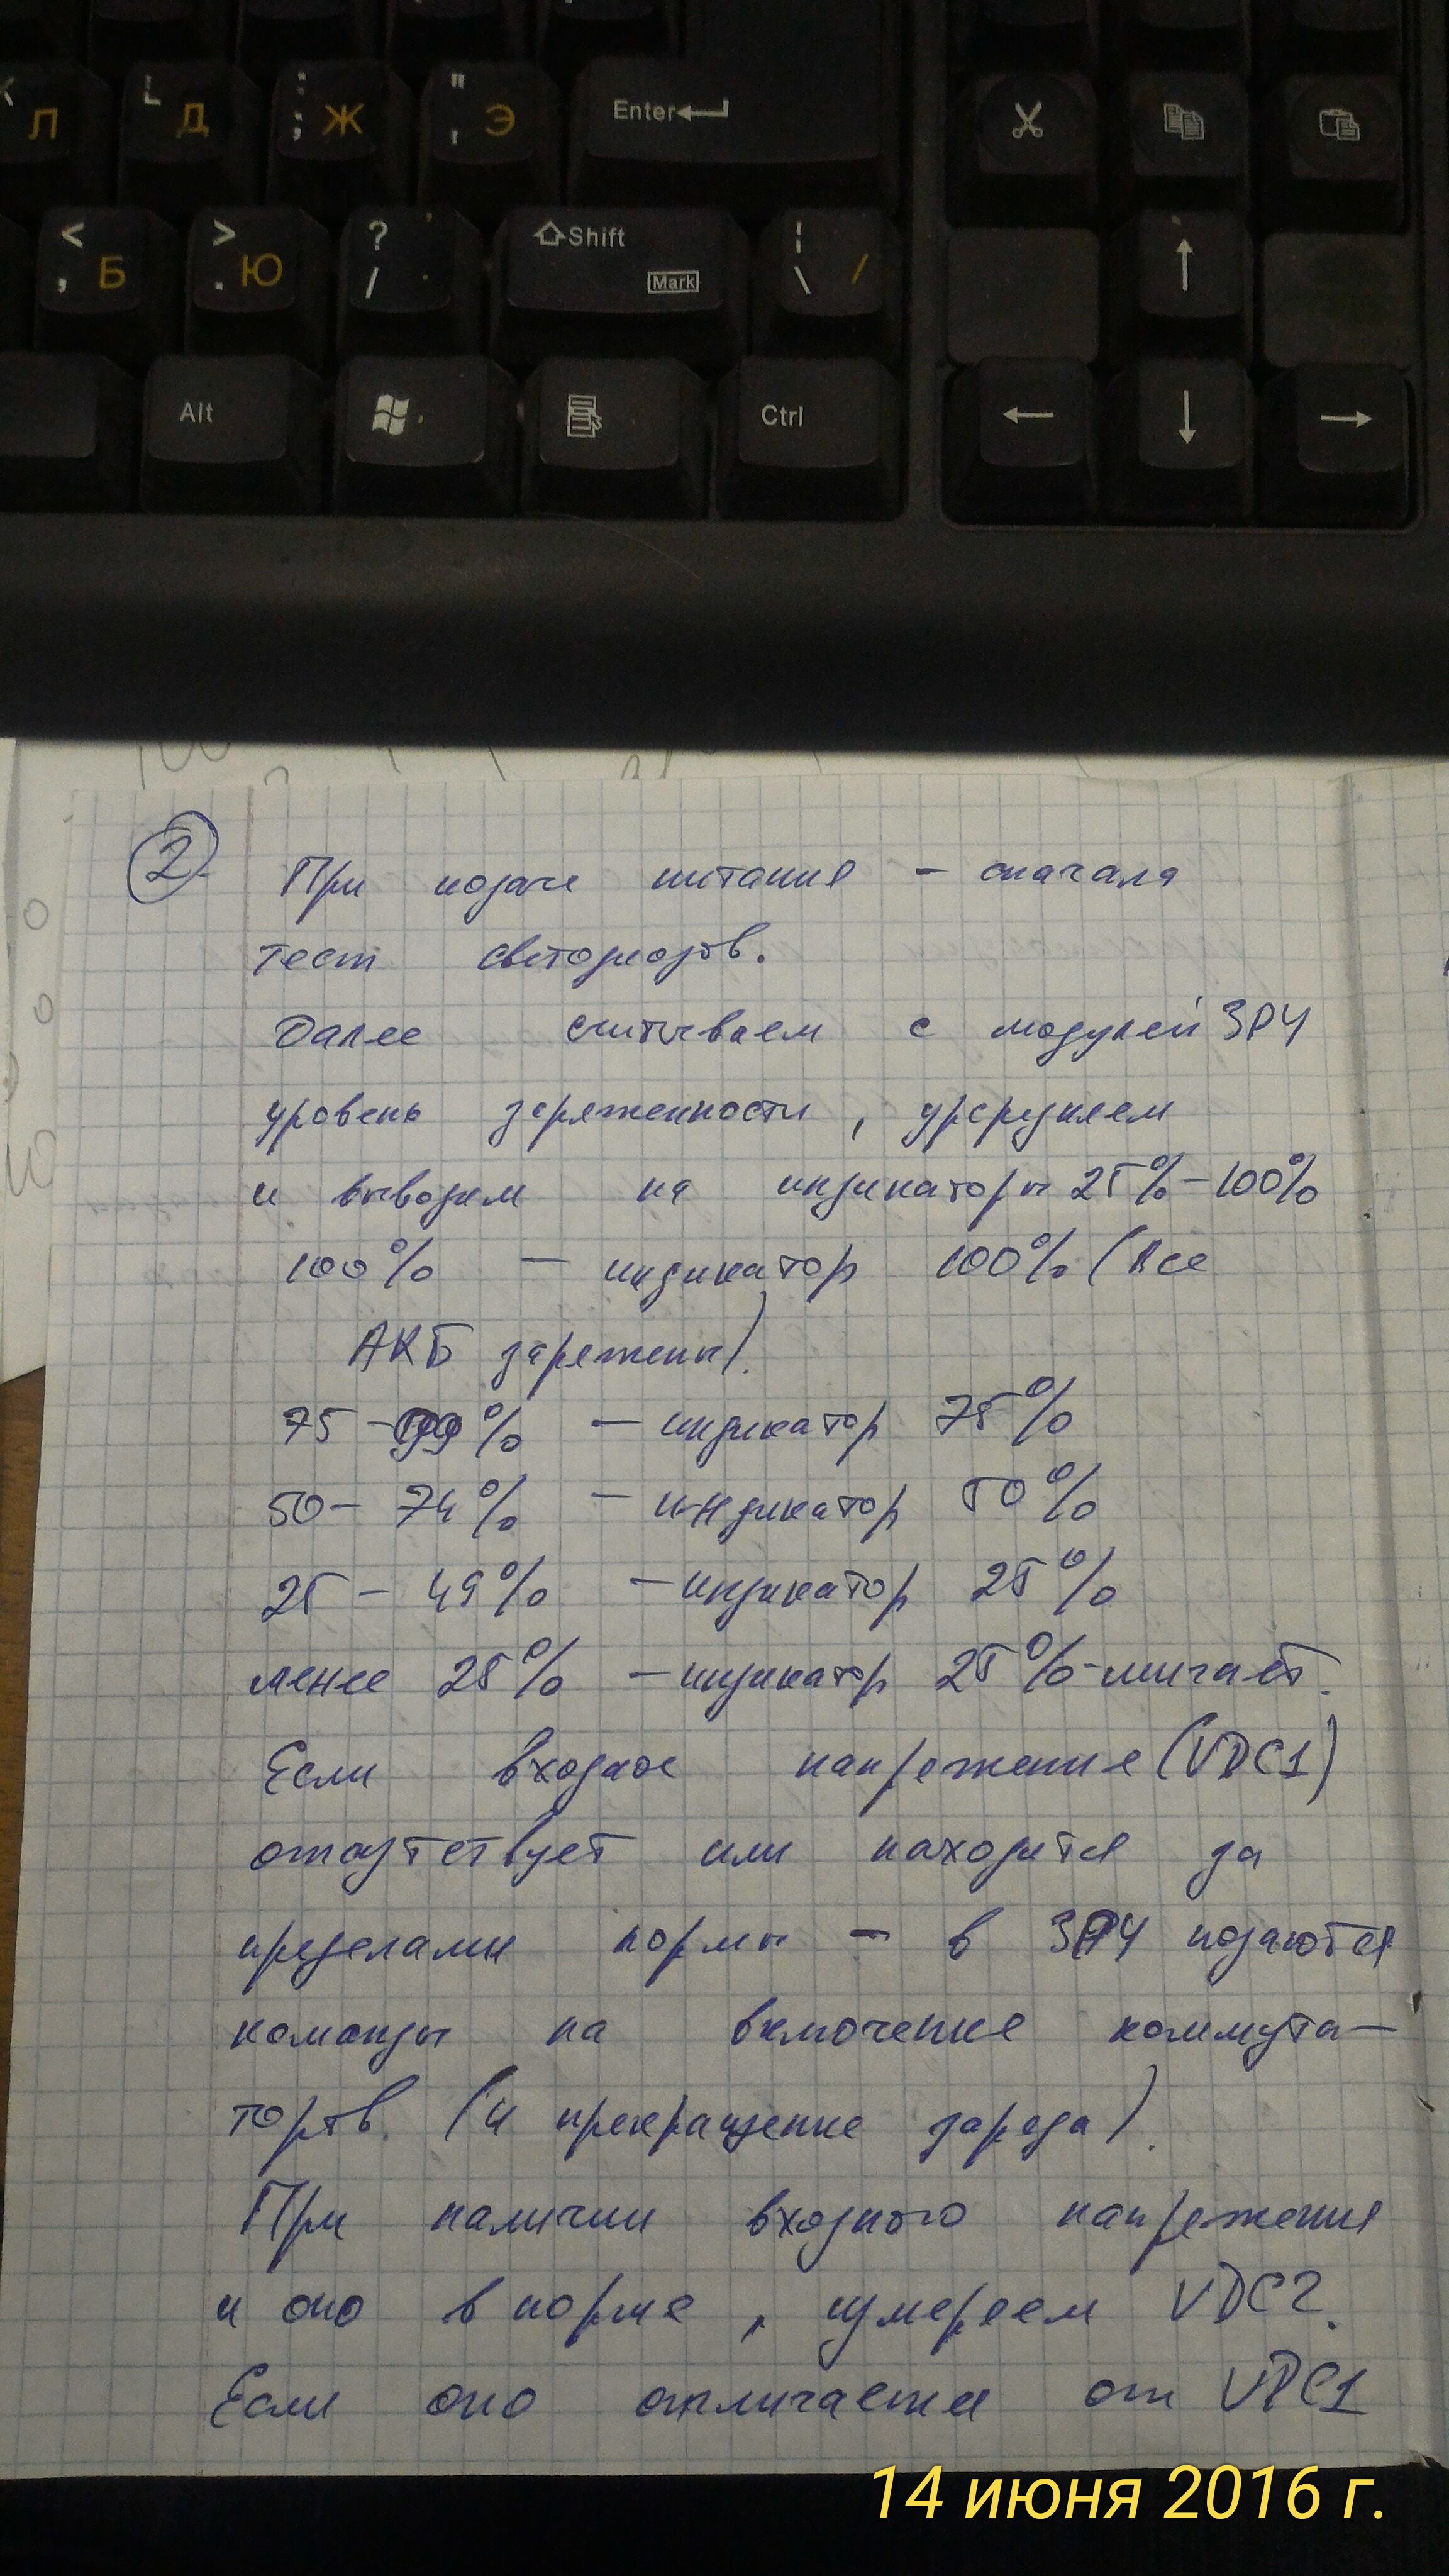 Л Д ; Ж " ' Э Enter
< , Б > . Ю ? / Shift Mark ¦ \ /
Alt Ctrl
2 При подаче питания – сначала
тест светодиодов.
Далее считываем с модулей ЗРУ
уровень заряженности, усредняем
и выводим на индикаторы 25%–100%
100% – индикатор 100% (Все
АКБ заряжены).
75–99% – индикатор 75%
50–74% – индикатор 50%
25–49% – индикатор 25%
менее 25% – индикатор 25% – мигает.
Если входное напряжение (VDC1)
отсутствует или находится за
пределами нормы – в ЗРУ подаются
команды на включение коммута–
торов. (и прекращение заряда).
При наличии входного напряжения
и оно в норме, измеряем VDC2.
Если оно отличается от VDC1
14 июня 2016 г.